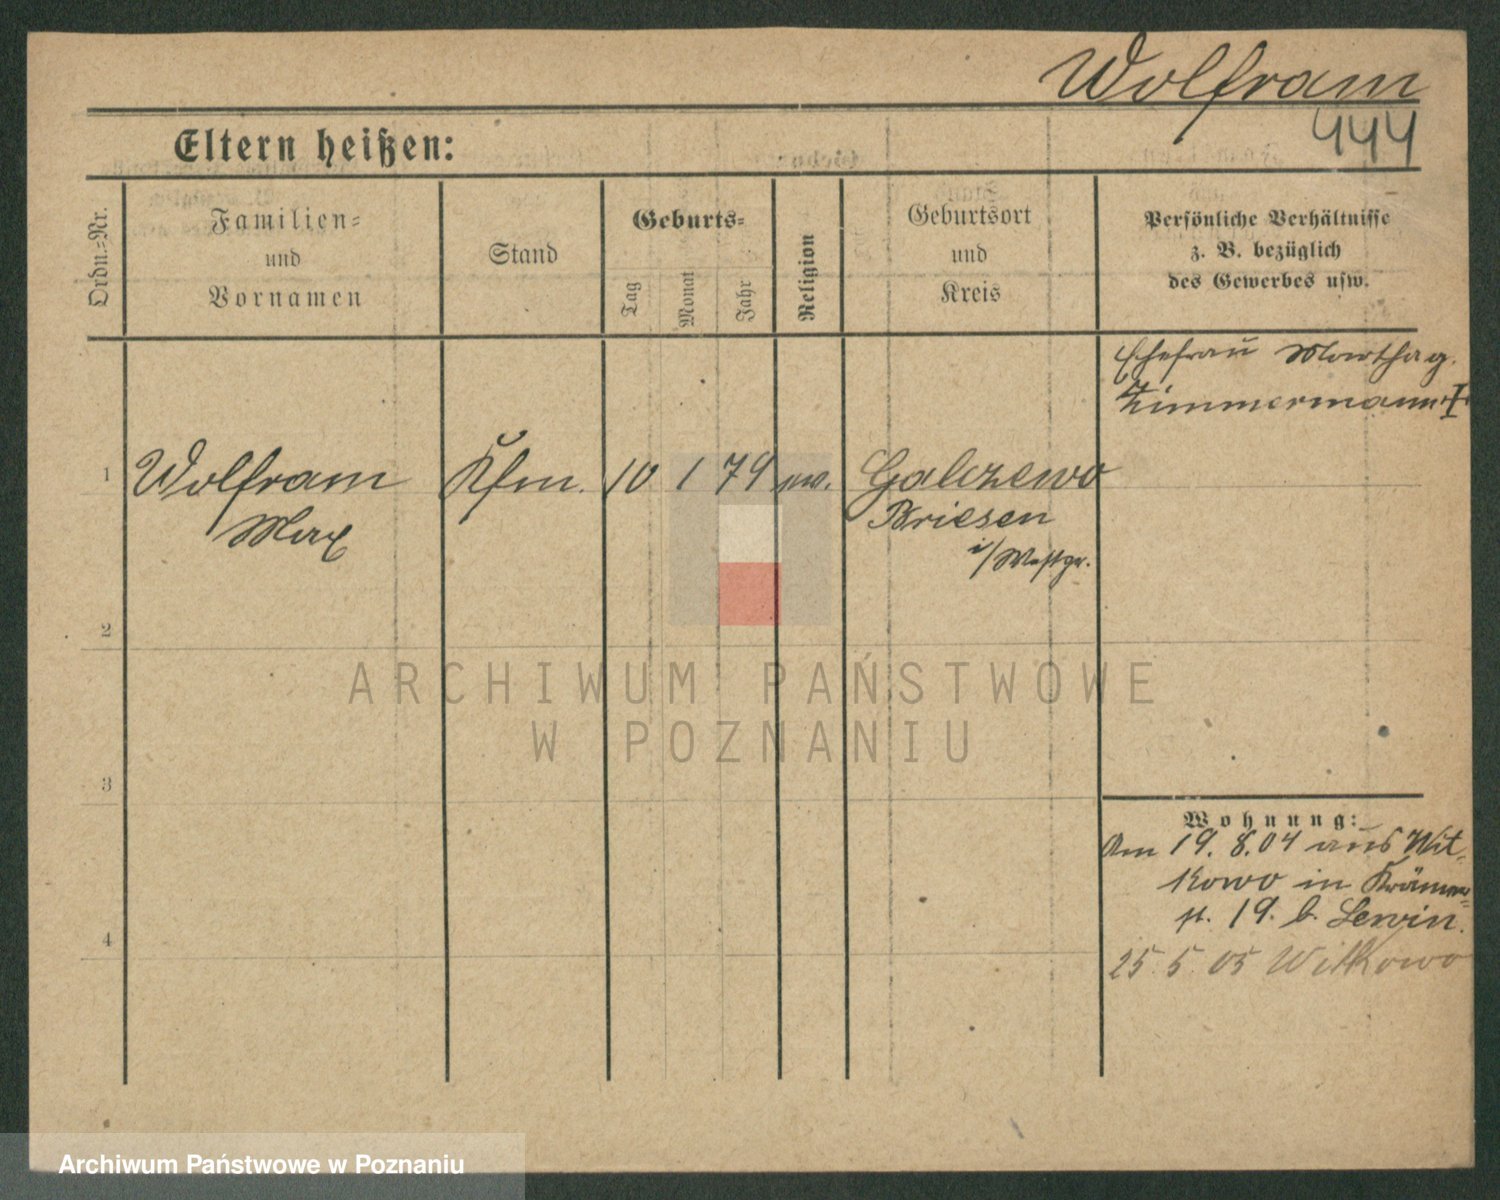 Wolfram
444
Eltern heißen:
Ordn.=Nr.
Familien=
und
Vornamen
Stand
Geburts=
Tag
Monat
Jahr
Religion
Geburtsort
und
Kreis
Persönliche Verhältnisse
z. B. bezüglich
des Gewerbes usw.
Ehefrau Martha g.
Zimmermann
1 Wolfram Kfm. 10 1 79 ev. Galczewo
Max Briesen
i/Westpr.
2
ARCHIWUM PAŃSTWOWE
W POZNANIU
3
Wohnung:
Am 19. 8. 04 aus Wit-
kowo in Krämer=
st. 19. b. Lewin.
4
25. 5. 05 Witkowo
Archiwum Państwowe w Poznaniu